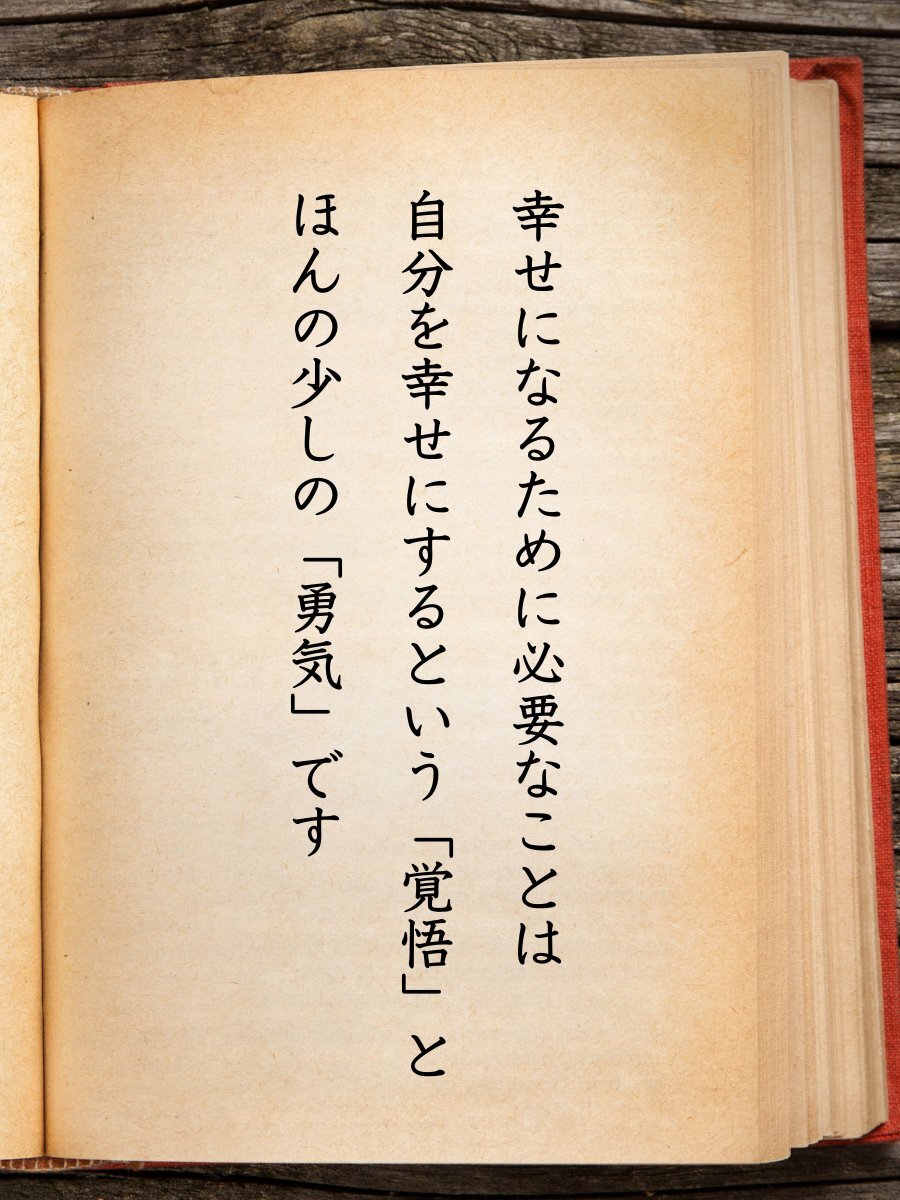 幸せになるために必要なことは
自分を幸せにするという「覚悟」と
ほんの少しの「勇気」です